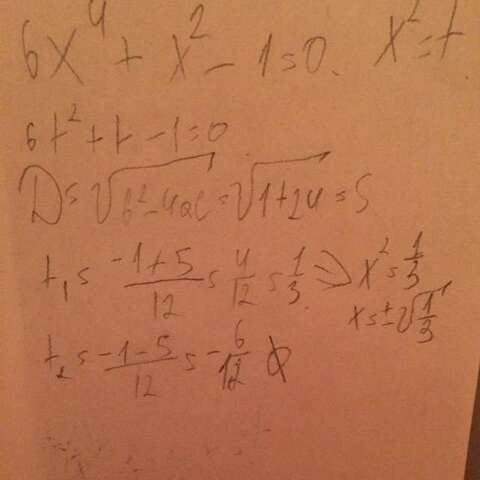 6x⁴ + x² - 1 = 0. x² = t
6t² + t - 1 = 0
D = √(b² - 4ac) = √(1 + 24) = 5
t₁ = (-1 + 5)/12 = 4/12 = 1/3 ⇒ x² = 1/3
x = ±√(1/3)
t₂ = (-1 - 5)/12 = -6/12 ∅